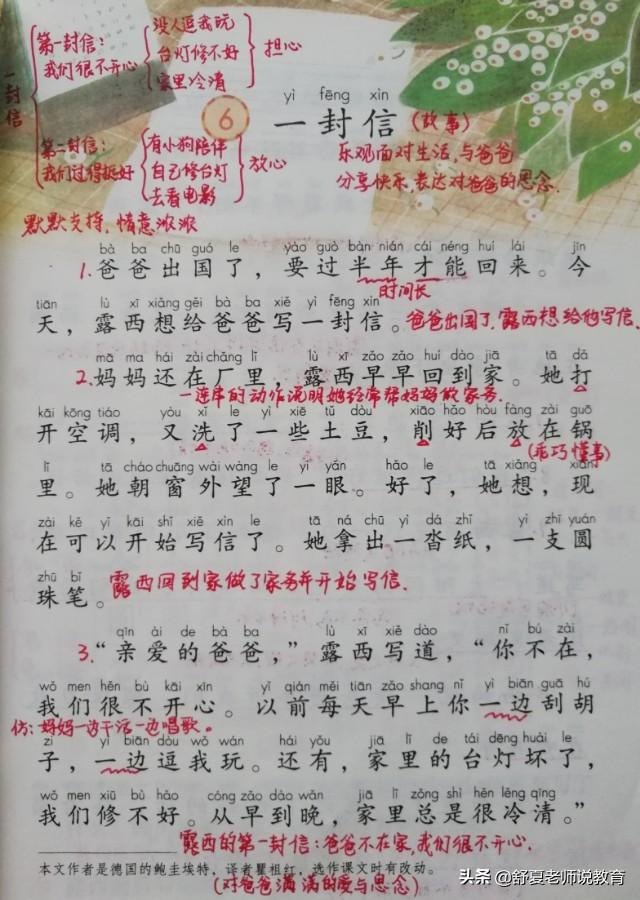 一封信
第一封信：
我们很不开心
没人逗我玩
台灯修不好
家里冷清
担心
第二封信：
我们过得挺好
有小狗陪伴
自己修台灯
去看电影
放心
默默支持，情意浓浓
6
yì fēng xìn
一封信（故事）
乐观面对生活，与爸爸
分享快乐，表达对爸爸的思念.
bà ba chū guó le yào guò bàn nián cái néng huí lái jīn
1.爸爸出国了，要过半年才能回来。今
时间长
tiān lù xī xiǎng gěi bà ba xiě yì fēng xìn
天，露西想给爸爸写一封信。爸爸出国了，露西想给他写信.
mā ma hái zài chǎng lǐ lù xī zǎo zǎo huí dào jiā tā dǎ
2.妈妈还在厂里，露西早早回到家。她打
一连串的动作说明她经常帮妈妈做家务.
kāi kōng tiáo yòu xǐ le yì xiē tǔ dòu xiāo hǎo hòu fàng zài guō
开空调，又洗了一些土豆，削好后放在锅
（乖巧懂事）
lǐ tā cháo chuāng wài wàng le yì yǎn hǎo le tā xiǎng xiàn
里。她朝窗外望了一眼。好了，她想，现
zài kě yǐ kāi shǐ xiě xìn le tā ná chū yì dá zhǐ yì zhī yuán
在可以开始写信了。她拿出一沓纸，一支圆
zhū bǐ
珠笔。露西回到家做了家务并开始写信.
qīn ài de bà ba lù xī xiě dào nǐ bú zài
3.“亲爱的爸爸，”露西写道，“你不在，
wǒ men hěn bù kāi xīn yǐ qián měi tiān zǎo shang nǐ yì biān guā hú
我们很不开心。以前每天早上你一边刮胡
仿：妈妈一边干活一边唱歌。
zi yì biān dòu wǒ wán hái yǒu jiā lǐ de tái dēng huài le
子，一边逗我玩。还有，家里的台灯坏了，
wǒ men xiū bù hǎo cóng zǎo dào wǎn jiā lǐ zǒng shì hěn lěng qīng
我们修不好。从早到晚，家里总是很冷清。”
露西的第一封信：爸爸不在家，我们很不开心.
本文作者是德国的鲍圭埃特，译者瞿祖红，选作课文时有改动。
（对爸爸满满的爱与思念）
头条 @舒夏老师说教育